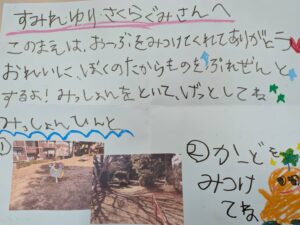 すみれゆりさくらぐみさんへ
このまえは、おつぶをみつけてくれてありがとう
おれいに、ぼくのたからものをぷれぜんと
するよ！みっしょんをといて、げっとしてね
みっしょんひんと
①
②かーどを
みつけ
てね